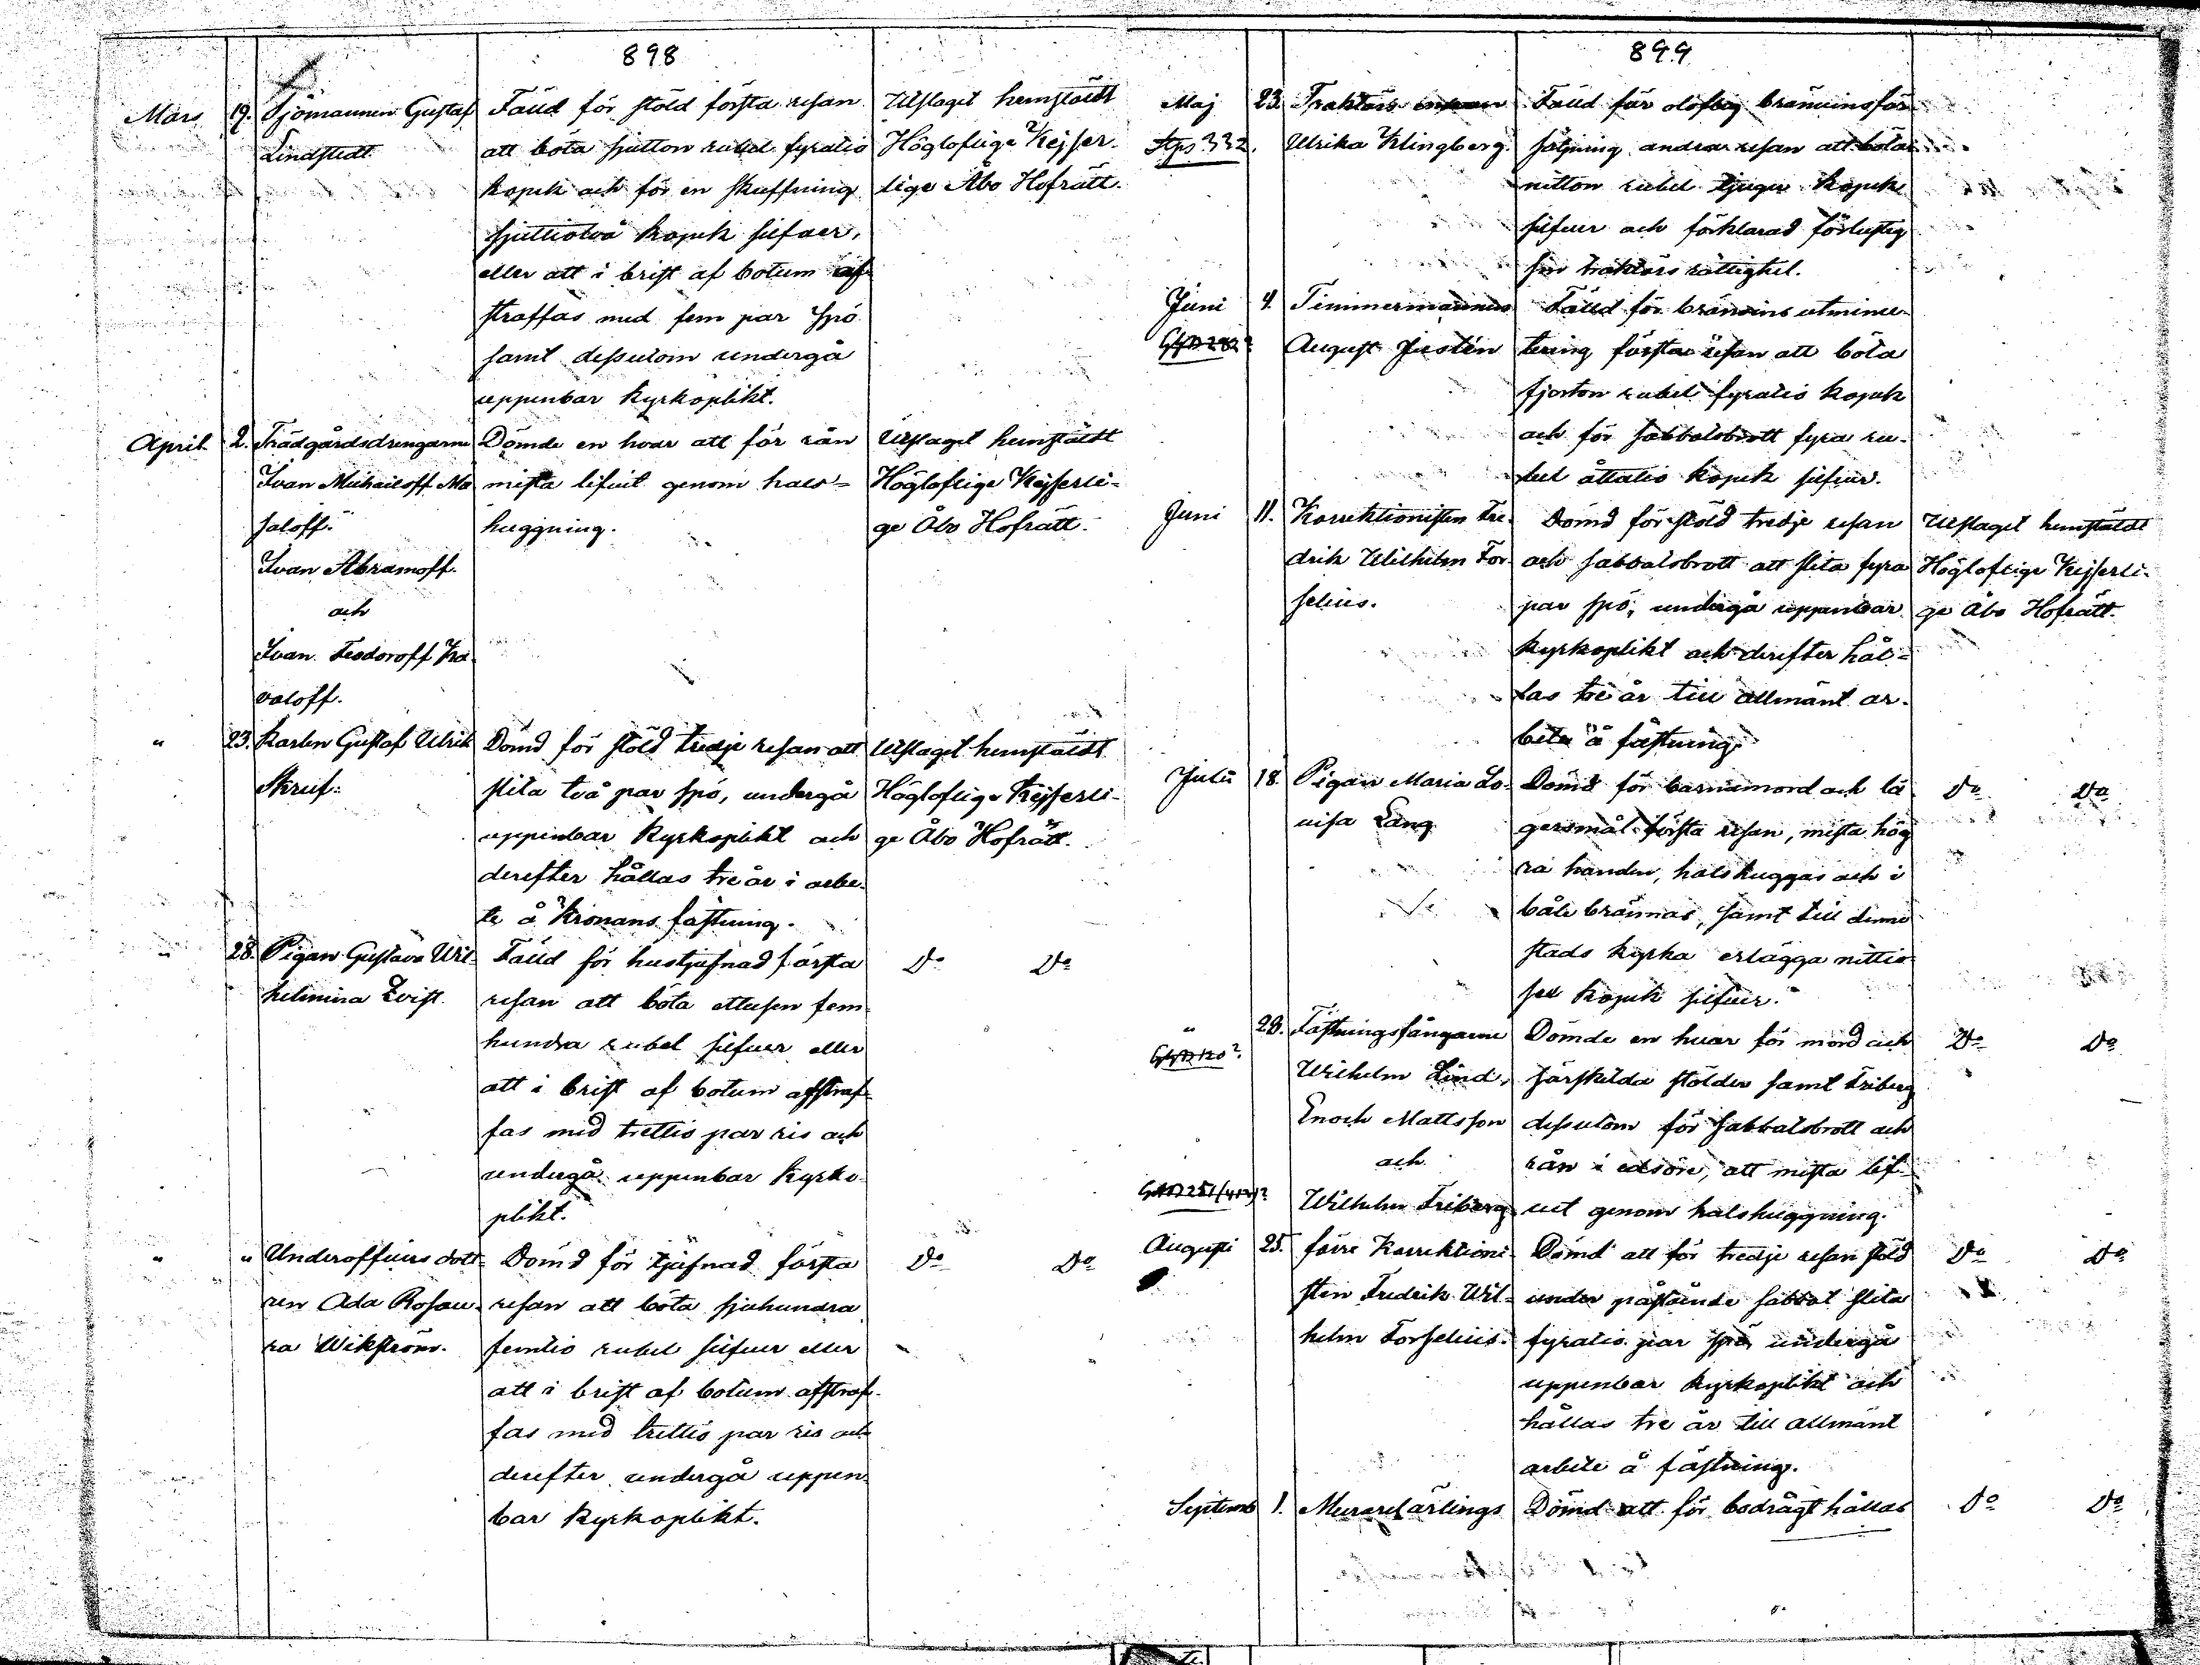 898
Mars 19. Sjömannen Gustaf
Lindstedt
Fälld för stöld första resan
att böta sjutton rubel fyratio
kopek och för en skuffning
sjuttiotvå kopek silfver,
eller att i brist af botum af
straffas med fem par spö
samt dessutom undergå
uppenbar kyrkoplikt.
Utslaget hemstäldt
Högloflige Kejser-
lige Åbo Hofrätt.
April 2. Trädgårdsdrengarne
Ivan Michailoff Ma
saloff.
Ivan Abramoff.
och
Ivan Feodoroff Ka
valoff.
Dömde en hvar att för rån
mista lifvit genom hals-
huggning.
Utslaget hemstäldt
Högloflige Kejserli-
ge Åbo Hofrätt.
" 23. Karlen Gustaf Ulrik
Skruf:
Dömd för stöld tredje resan att
slita två par spö, undergå
uppenbar kyrkoplikt och
derefter hållas tre år i arbe-
te å Kronans fästning.
Utslaget hemstäldt
Högloflige Kejserli-
ge Åbo Hofrätt.
" 28. Pigan Gustava Wil-
helmina Qvist.
Fälld för hustjufnad första
resan att böta ettusen fem
hundra rubel silfver eller
att i brist af botum afstraf-
fas med trettio par ris och
undergå uppenbar kyrko-
plikt.
Do Do
" " Underofficers dott-
ren Ada Rosau-
ra Wikström.
Dömd för tjufnad första
resan att böta sjuhundra
femtio rubel silfver eller
att i brist af botum afstraf-
fas med trettio par ris och
derefter undergå uppen-
bar kyrkoplikt.
Do Do
899
Maj 23. Traktörs
Stps 332. Ulrika Klingberg.
Fälld för oloflig bränvinsför
säljning andra resan att böta
nitton rubel tjugu kopek
silfver och förklarad förlustig
sin traktörs rättighet.
Juni 4. Timmermannen
August Justén
Fälld för bränvins utminu-
tering första resan att böta
fjorton rubel fyratio kopek
och för sabbatsbrott fyra ru-
bel åttatio kopek silfver.
Juni 11. Korrektionisten Fre-
drik Wilhelm For
selius.
Dömd för stöld tredje resan
och sabbatsbrott att slita fyra
par spö, undergå uppenbar
kyrkoplikt och derefter hål-
las tre år till allmänt ar-
bete å fästning.
Utslaget hemstäldt
Högloflige Kejserli-
ge Åbo Hofrätt.
Julii 18. Pigan Maria Lo-
visa Lang
Dömd för barnamord och lä
gersmål första resan, mista hög
ra handen, halshuggas och i
båle brännas, samt till denne
stads kyrka erlägga nittio
sex kopek silfver.
Do Do
" 28. Fästningsfångarne
GAD 120?
Wilhelm Lind,
Enoch Mattsson
och
GAD 251/413)?
Wilhelm Friberg
Dömde en hvar för mord och
särskilda stölder samt Friberg
dessutom för sabbatsbrott och
rån i edsöre, att mista lif-
vet genom halshuggning.
Do Do
Augusti 25. förre Korrektioni-
sten Fredrik Wil-
helm Forselius.
Dömd att för tredje resan stöld
under påstående sabbat slita
fyratio par spö undergå
uppenbar kyrkoplikt och
hållas tre år till allmänt
arbete å fästning.
Do Do
Septemb 1. Murarelärlings
Dömd att för bodrägt hållas
Do Do